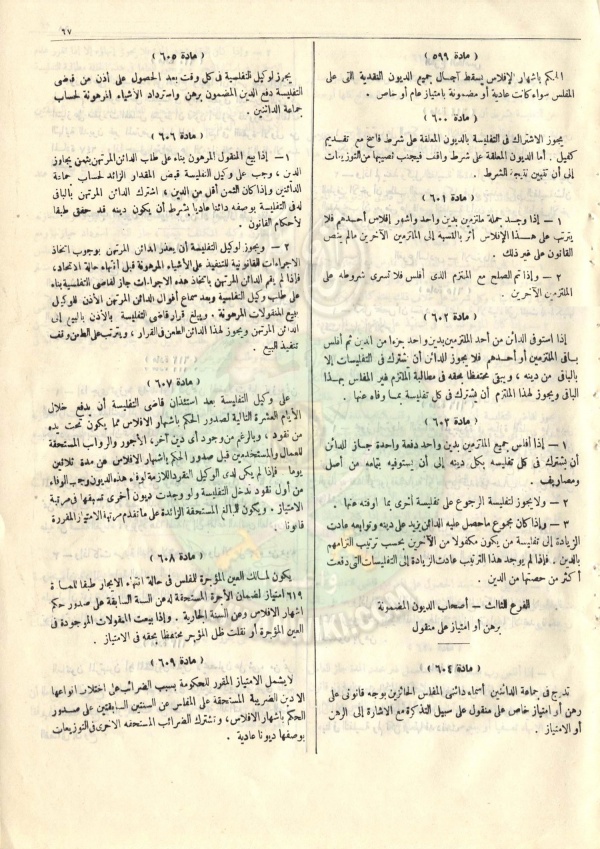 ٦٧
( مادة ٥٩٩ )
الحكم بإشهار الإفلاس يسقط آجال جميع الديون النقدية التى على
المفلس سواء كانت عادية أو مضمونة بامتياز عام أو خاص .
( مادة ٦٠٠ )
يجوز الاشتراك فى التفليسة بالديون المعلقة على شرط فاسخ مع تقديم
كفيل . أما الديون المعلقة على شرط واقف فيجنب نصيبها من التوزيعات
إلى أن تتبين نتيجة الشرط .
( مادة ٦٠١ )
١ – إذا وجد جملة ملتزمين بدين واحد واشهر إفلاس أحدهم فلا
يترتب على هذا الإفلاس أثر بالنسبة إلى الملتزمين الآخرين مالم ينص
القانون على غير ذلك .
٢ – وإذا تم الصلح مع الملتزم الذى أفلس فلا تسرى شروطه على
الملتزمين الآخرين .
( مادة ٦٠٢ )
إذا استوفى الدائن من أحد الملتزمين بدين واحد جزءا من الدين ثم أفلس
باقى الملتزمين أو أحدهم فلا يجوز للدائن أن يشترك فى التفليسات إلا
بالباقى من دينه ، ويبقى محتفظا بحقه فى مطالبة الملتزم غير المفلس بهذا
الباقى ويجوز لهذا الملتزم أن يشترك فى كل تفليسة بما وفاه عنها .
( مادة ٦٠٣ )
١ – إذا أفلس جميع الملتزمين بدين واحد دفعة واحدة جاز للدائن
أن يشترك فى كل تفليسة بكل دينه إلى أن يستوفيه بتمامه من أصل
ومصاريف .
٢ – ولا يجوز لتفليسة الرجوع على تفليسة أخرى بما اوفته عنها .
٣ – وإذا كان مجموع ماحصل عليه الدائن يزيد على دينه وتوابعه عادت
الزيادة إلى تفليسة من يكون مكفولا من الآخرين بحسب ترتيب التزامهم
بالدين . فإذا لم يوجد هذا الترتيب عادت الزيادة إلى التفليسات التى دفعت
أكثر من حصتها من الدين .
الفرع الثالث – أصحاب الديون المضمونة
برهن أو امتياز على منقول
( مادة ٦٠٤ )
تدرج فى جماعة الدائنين أسماء دائنى المفلس الحائزين بوجه قانونى على
رهن أو امتياز خاص على منقول على سبيل التذكرة مع الاشارة إلى الرهن
أو الامتياز .
( مادة ٦٠٥ )
يجوز لوكيل التفليسة فى كل وقت بعد الحصول على أذن من قاضى
التفليسة دفع الدين المضمون برهن واسترداد الأشياء المرهونة لحساب
جماعة الدائنين .
( مادة ٦٠٦ )
١ – إذا بيع المنقول المرهون بناء على طلب الدائن المرتهن بثمن يجاوز
الدين ، وجب على وكيل التفليسة قبض المقدار الزائد لحساب جماعة
الدائنين وإذا كان الثمن أقل من الدين ، اشترك الدائن المرتهن بالباقى
له فى التفليسة بوصفه دائنا عاديا بشرط أن يكون دينه قد حقق طبقا
لأحكام القانون .
٢ – ويجوز لوكيل التفليسة أن يعذر الدائن المرتهن بوجوب اتخاذ
الاجراءات القانونية للتنفيذ على الأشياء المرهونة قبل انتهاء حالة الاتحاد ،
فإذا لم يقم الدائن المرتهن باتخاذ هذه الاجراءات جاز لقاضى التفليسة بناء
على طلب وكيل التفلسية وبعد سماع أقوال الدائن المرتهن الأذن للوكيل
ببيع المنقولات المرهونة . ويبلغ قرار قاضى التفليسة بالأذن بالبيع إلى
الدائن المرتهن ويجوز لهذا الدائن الطعن فى القرار ، ويترتب على الطعن وقف
تنفيذ البيع .
( مادة ٦٠٧ )
على وكيل التفليسة بعد استئذان قاضى التفليسة أن يدفع خلال
الأيام العشرة التالية لصدور الحكم بإشهار الافلاس مما يكون تحت يده
من نقود ، وبالرغم من وجود أى دين آخر ، الأجور والرواتب المستحقة
للعمال والمستخدمين قبل صدور الحكم بإشهار الافلاس عن مدة ثلاثين
يوما فإذا لم يكن لدى الوكيل النقود اللازمة لوفاء هذه الديون وجب الوفاء
من أول نقود تدخل التفليسة ولو وجدت ديون أخرى تسبقها فى مرتبة
الامتياز . ويكون للمبالغ المستحقة الزائدة على ماتقدم مرتبة الامتياز المقررة
قانونا .
( مادة ٦٠٨ )
يكون لمالك العين المؤجرة للمفلس فى حالة انتهاء الايجار طبقا للمادة
٦١٩ امتياز لضمان الأجرة المستحقة له عن السنة السابقة على صدور حكم
اشهار الافلاس وعن السنة الجارية . وإذا بيعت المنقولات الموجودة فى
العين المؤجرة أو نقلت ظل المؤجر محتفظا بحقه فى الامتياز .
( مادة ٦٠٩ )
لا يشمل الامتياز المقرر للحكومة بسبب الضرائب على اختلاف انواعها
الا دين الضريبة المستحقة على المفلس عن السنتين السابقتين على صدور
الحكم باشهار الافلاس ، وتشترك الضرائب المستحقه الاخرى فى التوزيعات
بوصفها ديونا عادية .